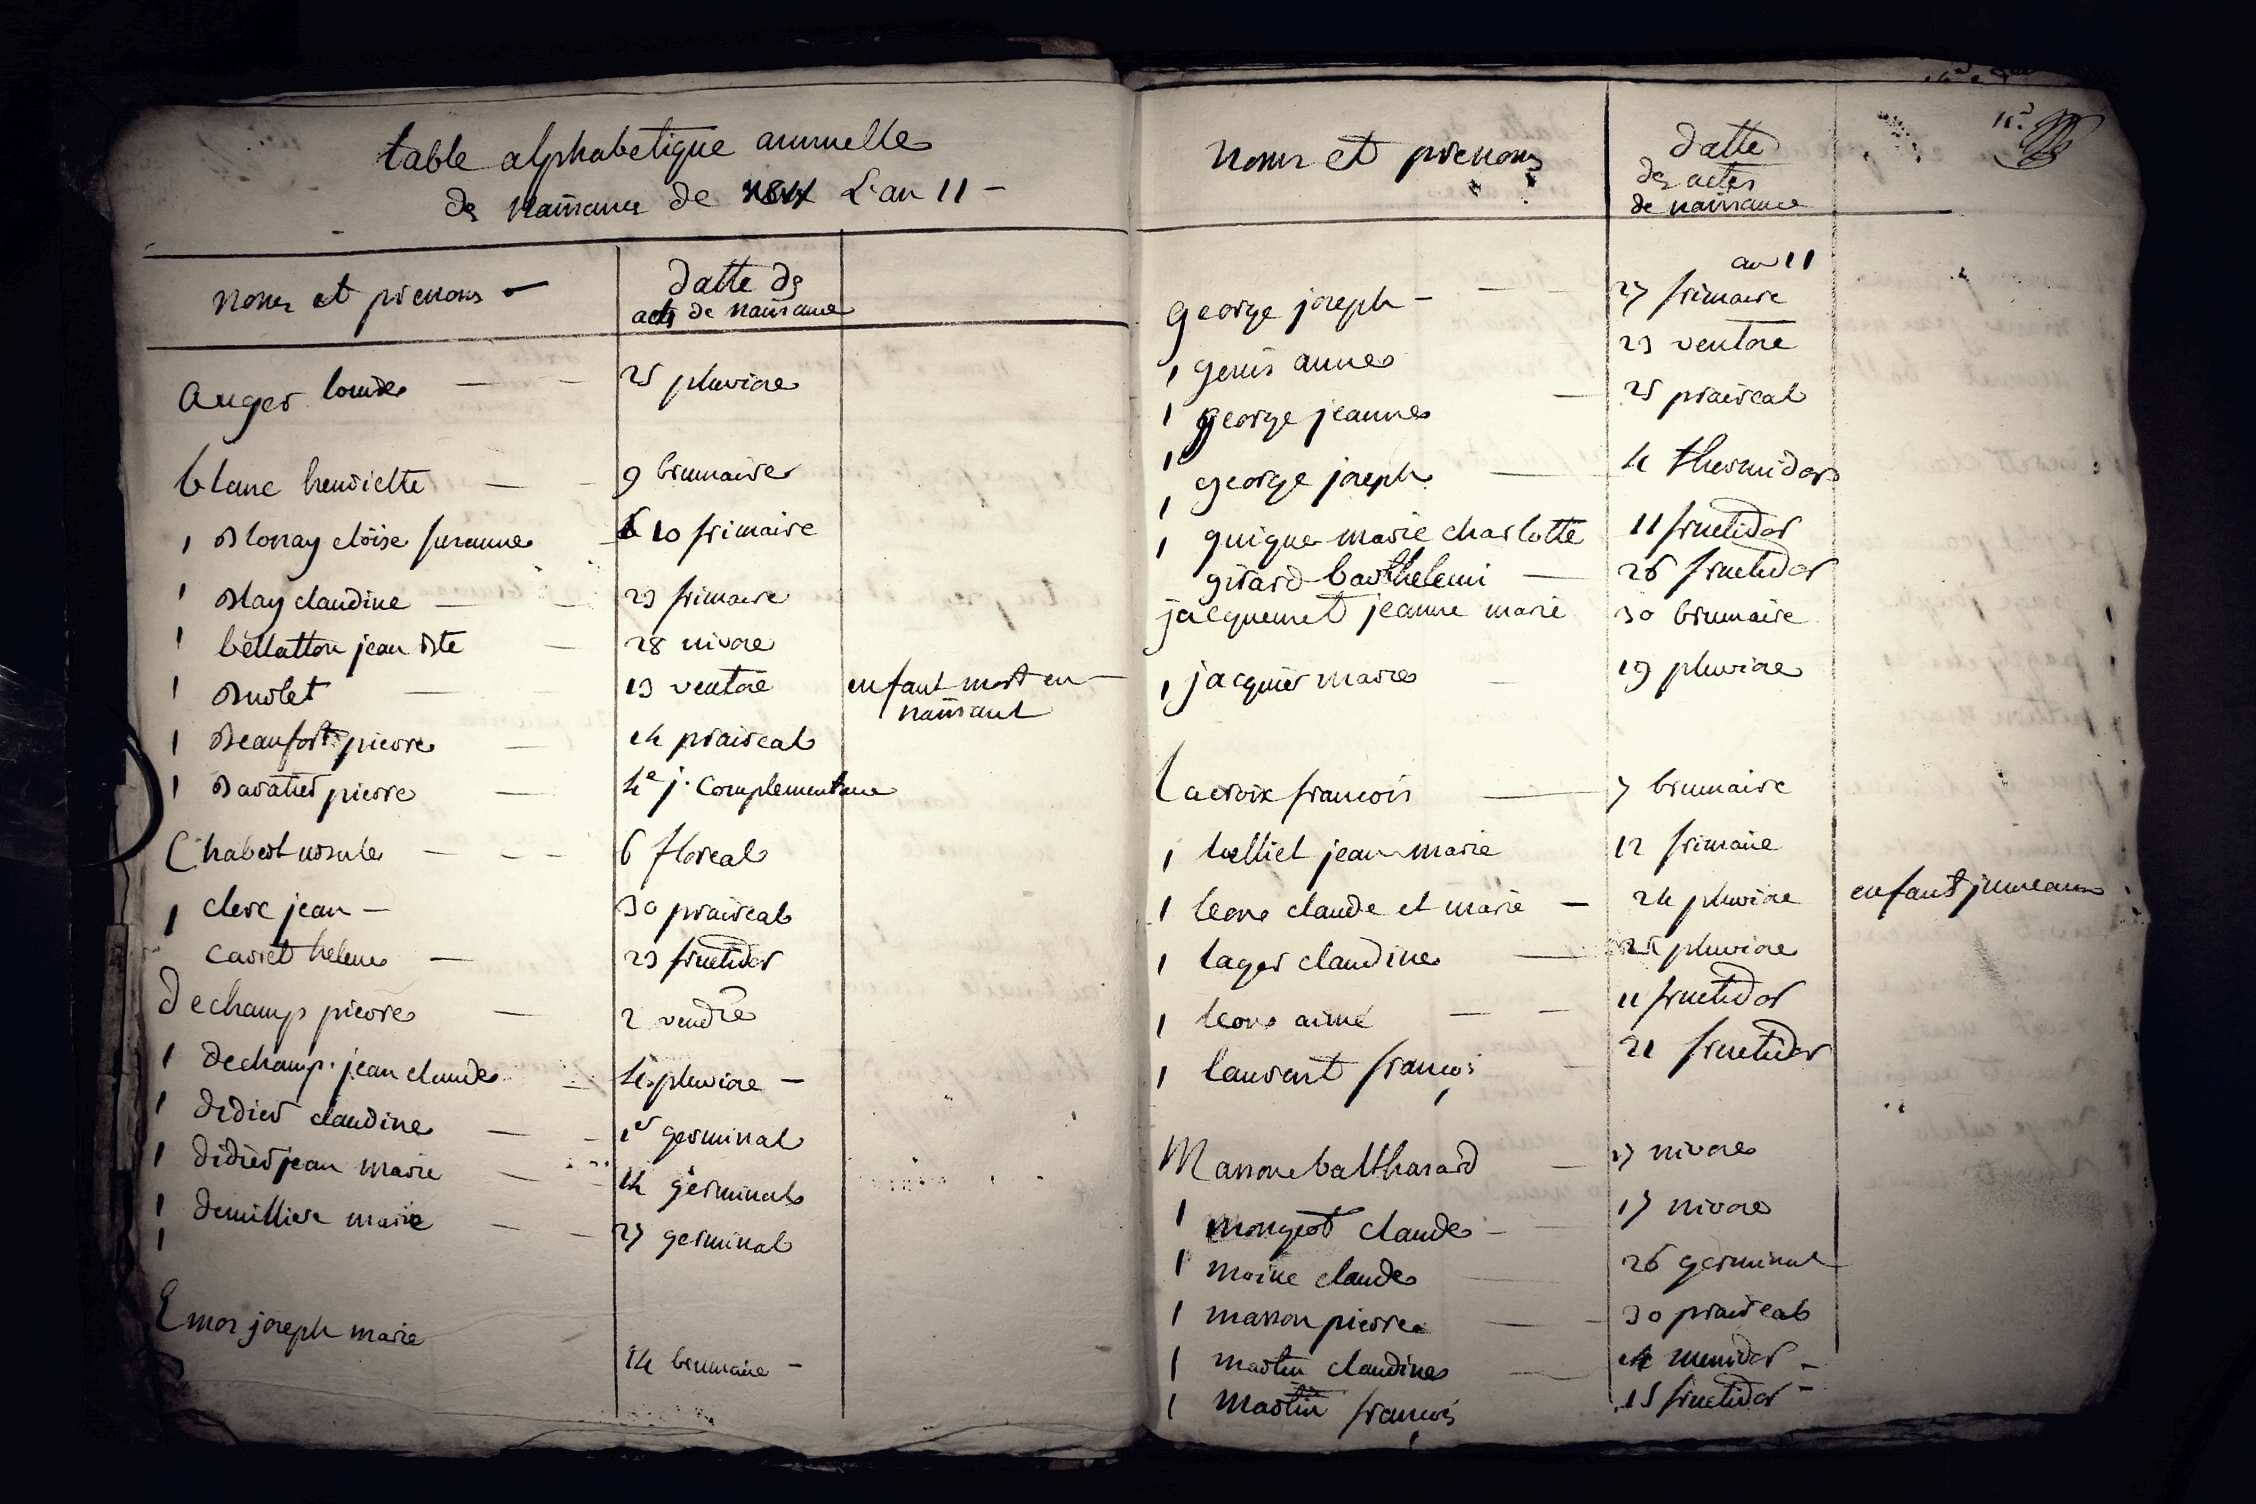 table alphabetique annuelle
de Naissances de L'an 11 -
Noms et prenoms
datte des
actes de naissance
auger louise 25 pluviose
blanc henriette 9 brumaire
Blonay eloise susanne 10 frimaire
Blay claudine 23 frimaire
bellatton jean Bte 28 nivose
Burlet 13 ventose enfant mort en
naissant
Beaufort pierre 14 prairéal
Baratier pierre 4e j. Complementaire
Chabert ursule 6 floreal
clerc jean - 30 prairéal
carret helene 23 fructidor
dechamp pierre 2 vendre
dechamp jean claude 4 pluviose -
didier claudine 1er germinal
didier jean marie 14 germinal
demilliere marie 27 germinal
Emor joseph marie
14 brumaire -
Noms et prenoms
datte
des actes
de naissance
an 11
george joseph - 27 frimaire
genis anne 23 ventose
george jeanne 25 prairéal
george joseph 4 thermidor
guigue marie charlotte 11 fructidor
girard barthelemi 26 fructidor
jacquemet jeanne marie 30 brumaire
jacquier marie 19 pluviose
Lacroix francois 7 brumaire
lelliet jean marie 12 frimaire
leone claude et marie - 24 pluviose enfant jumeaux
lager claudine 25 pluviose
leone aimé 11 fructidor
laurent françois 21 fructidor
Massone balthasard 17 nivose
mongeot claude - 17 nivose
moine claude 26 germinal
masson pierre 30 prairéal
martin claudine 14 messidor -
Martin françois 15 fructidor -